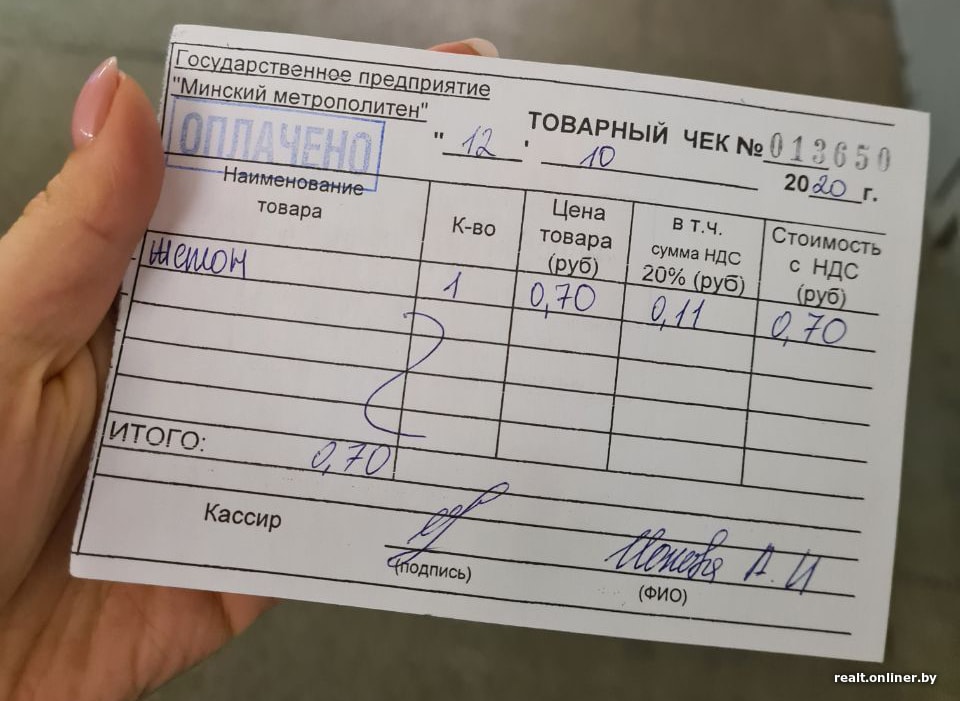 Государственное предприятие
"Минский метрополитен"
ОПЛАЧЕНО
ТОВАРНЫЙ ЧЕК № 013650
" 12 " 10 2020 г.
Наименование товара К-во Цена товара (руб) в т.ч. сумма НДС 20% (руб) Стоимость с НДС (руб)
жетон 1 0,70 0,11 0,70
ИТОГО: 0,70
Кассир
А. И
(подпись) (ФИО)
realt.onliner.by